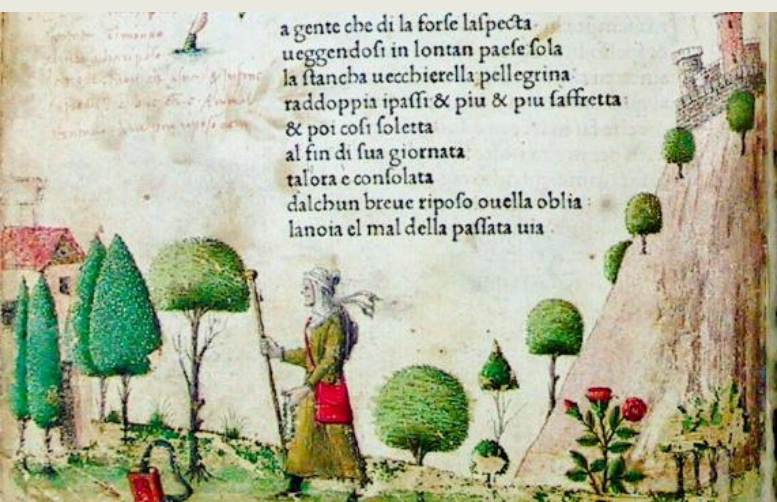 a gente che di la forſe laſpecta
ueggendoſi in lontan paeſe ſola
la ſtancha uecchierella pellegrina
raddoppia ipaſſi & piu & piu ſaffretta
& poi coſi ſoletta
al fin di ſua giornata
talora e conſolata
dalchun breue ripoſo ouella oblia
lanoia el mal della paſſata uia